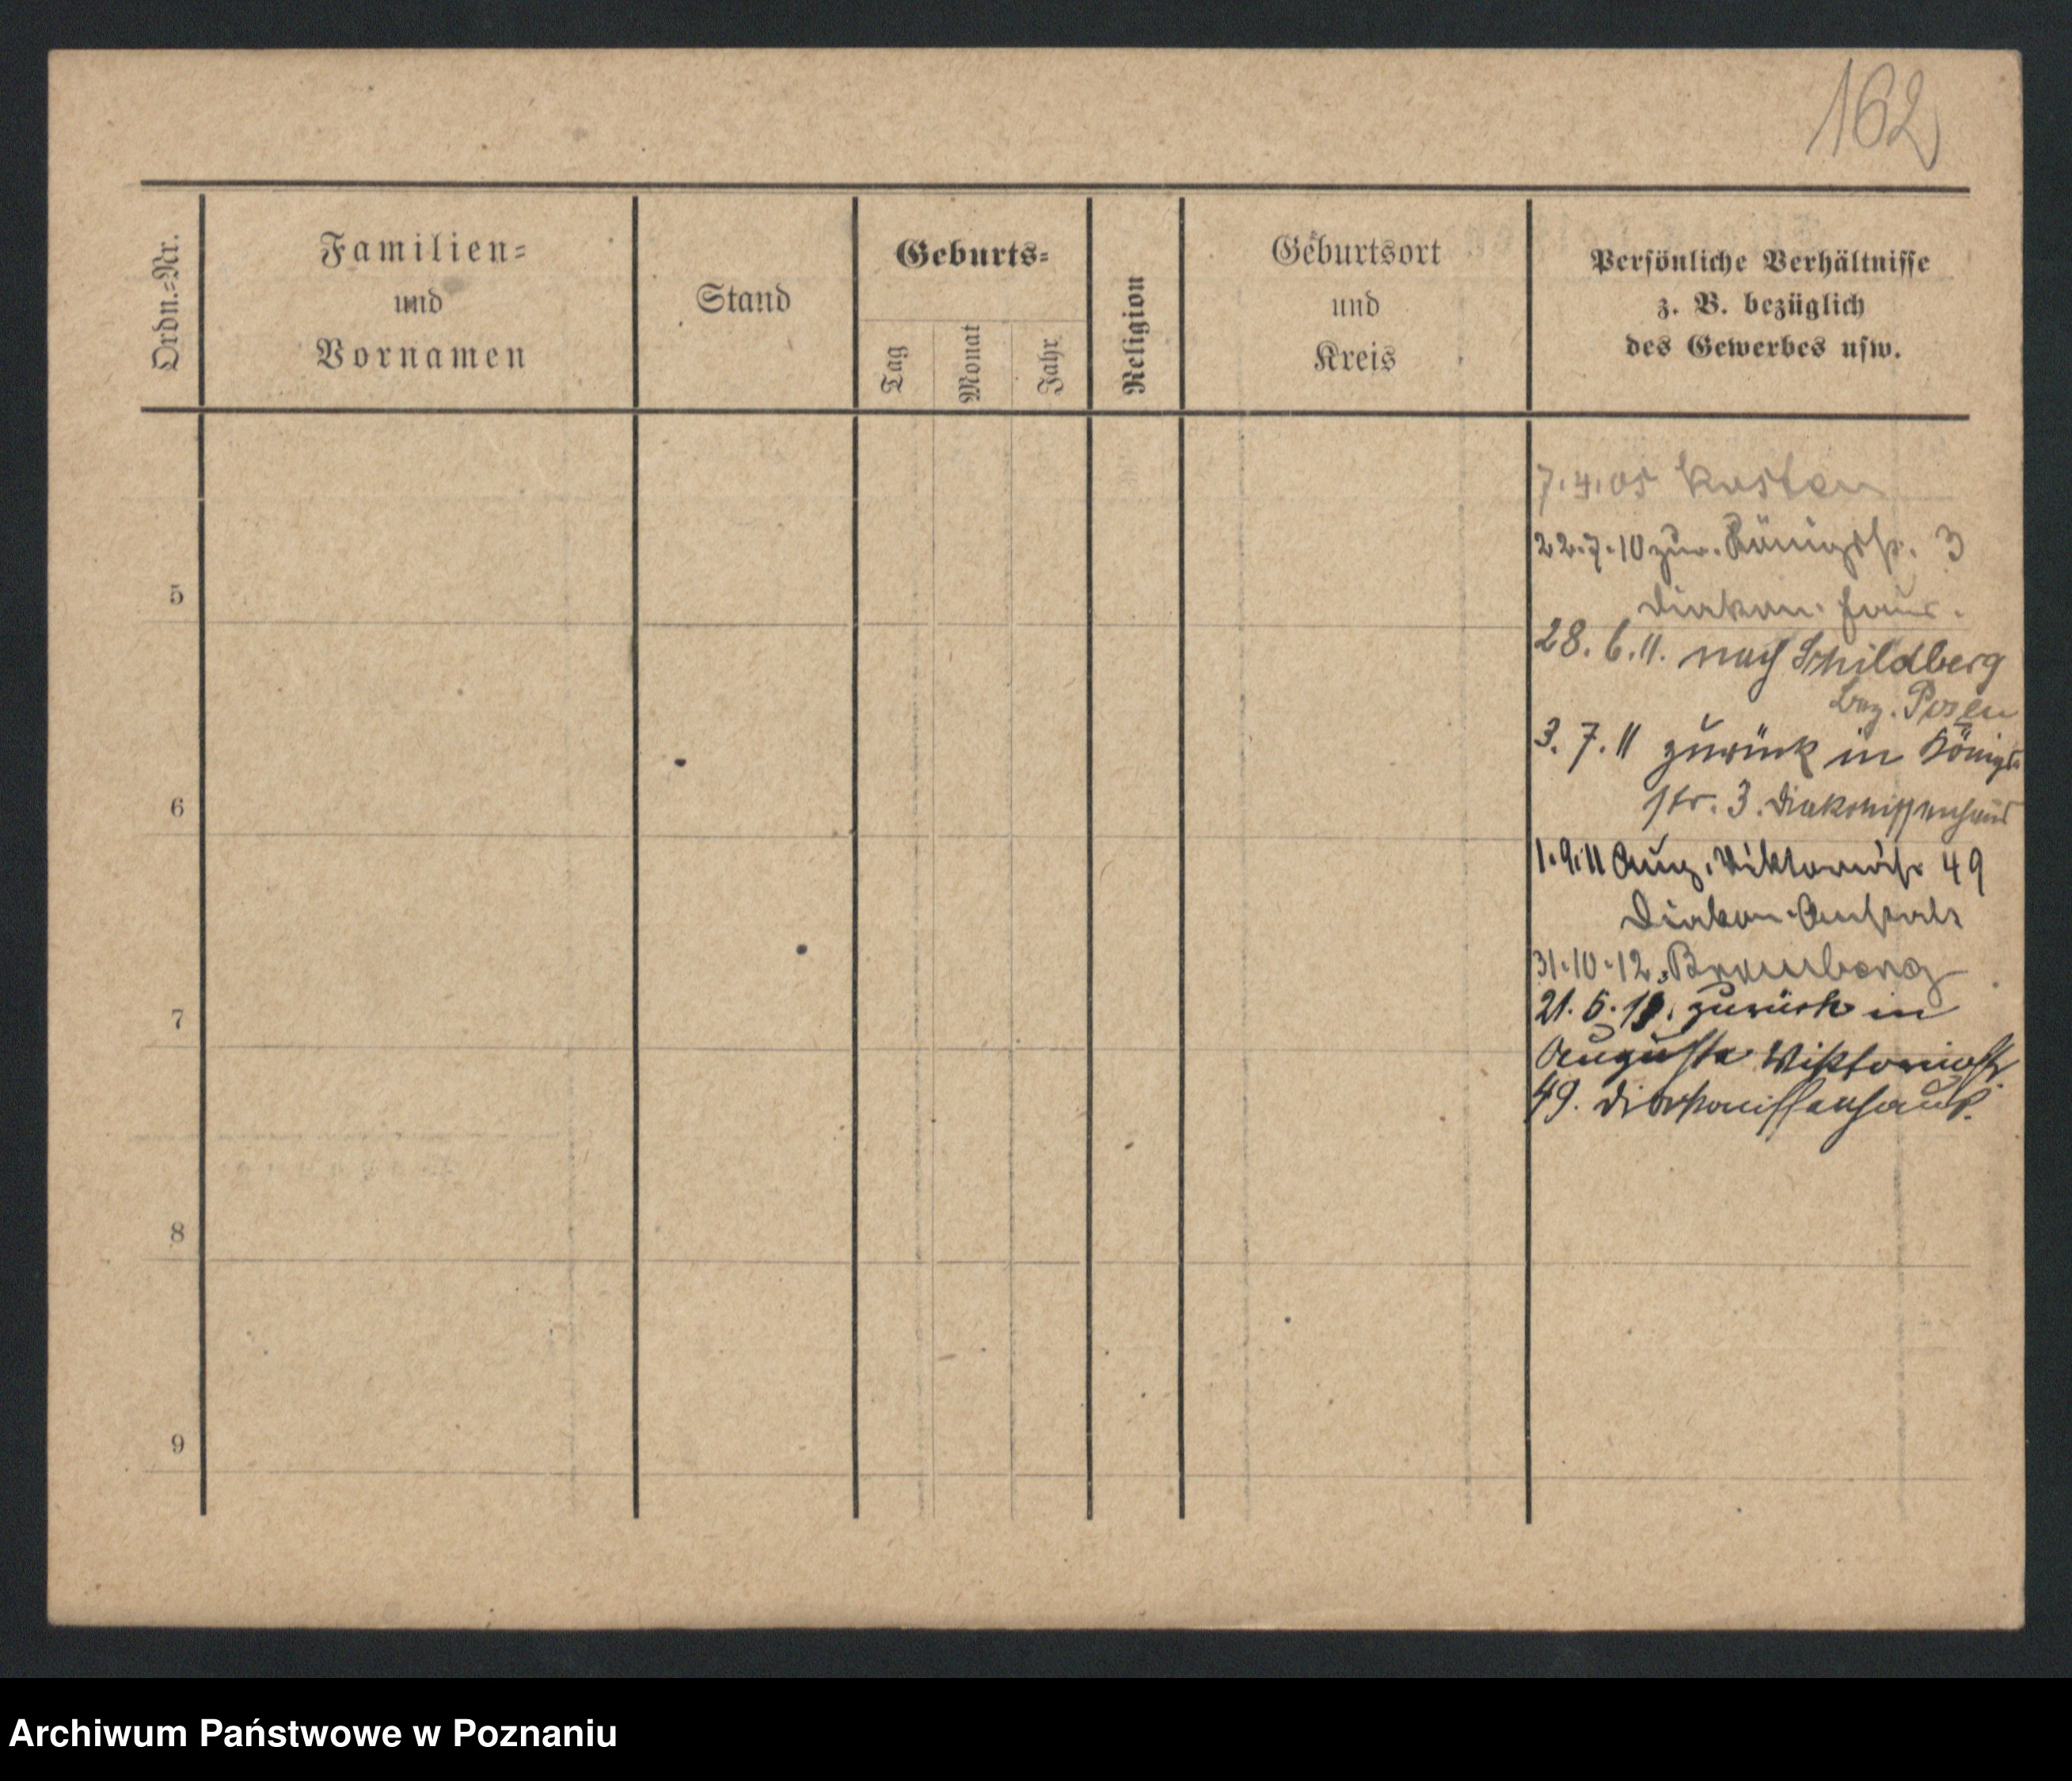 162
Ordn.-Nr.
Familien-
und
Vornamen
Stand
Geburts-
Tag
Monat
Jahr
Religion
Geburtsort
und
Kreis
Persönliche Verhältnisse
z. B. bezüglich
des Gewerbes usw.
7.4.05 Kosten
22.7.10 zur. Königsstr. 3
Diakon. haus.
5
28.6.11. nach Schildberg
Bez. Posen
3.7.11 zurück in Königs-
str. 3. Diakonissenhaus
6
1.9.11 Aug. Viktoriastr 49
Diakon. Anstalt
31.10.12. Bromberg
21.6. zurück in
7
Auguste Viktoriastr.
49. Diakonissenhaus.
8
9
Archiwum Państwowe w Poznaniu